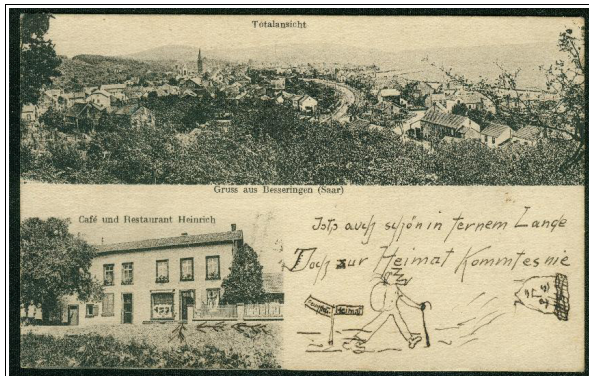 Totalansicht
Gruss aus Besseringen (Saar)
Café und Restaurant Heinrich
Ists auch schön in fernem Lande
Doch zur Heimat Kommt es nie
Heimat